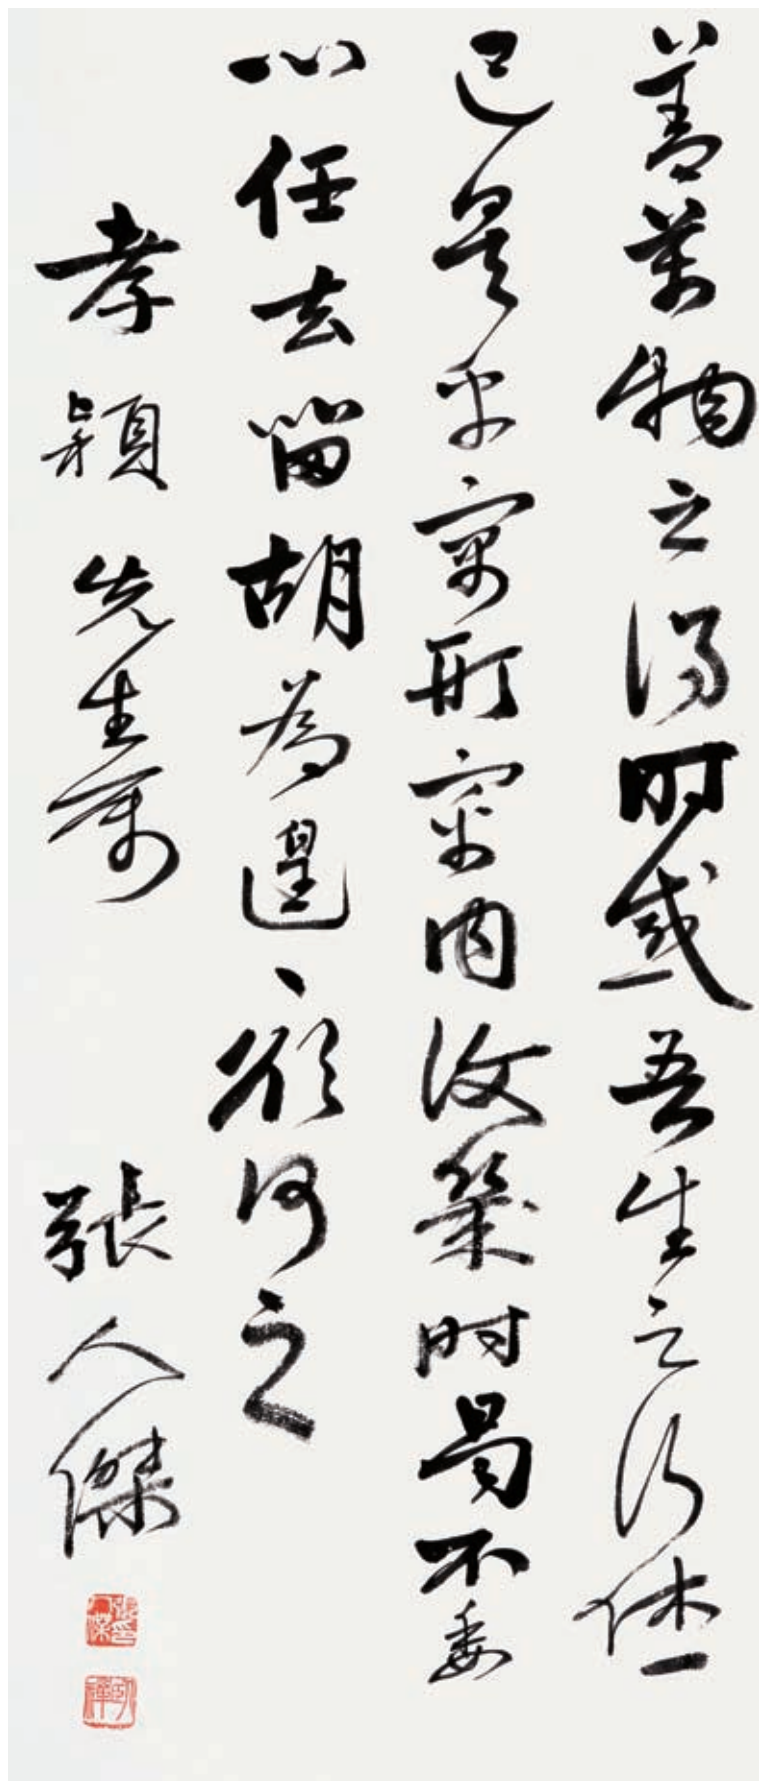 善萬物之得時感吾生之行休
已矣乎寓形宇內復幾時曷不委
心任去留胡為遑遑欲何之
孝穎先生屬
張人傑